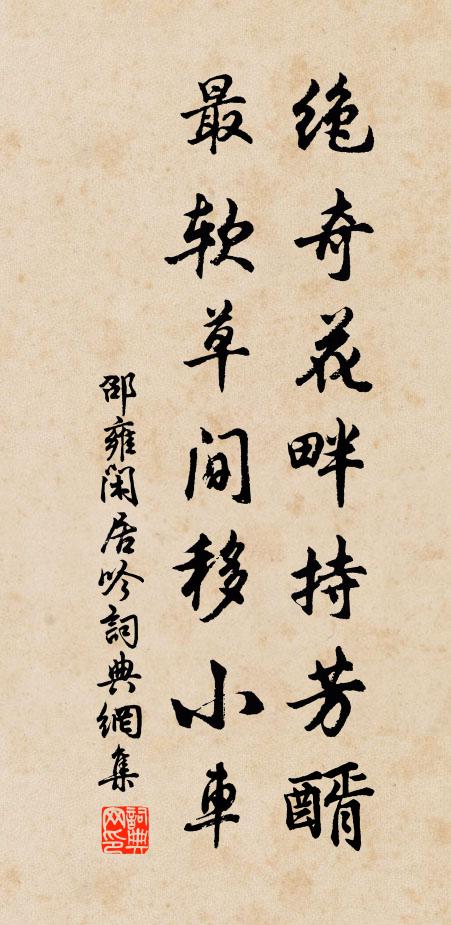 绝奇花畔持芳醑
最软草间移小車
邵雍闲居吟詞典網集
詞典网印